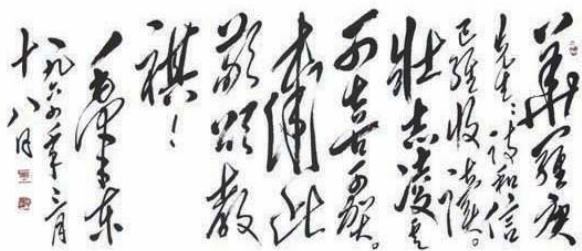 华罗庚
先生：诗和信
已经收读。
壮志凌云
可喜可贺。
肃此
敬颂教
祺！
毛泽东
一九六四年三月
十八日